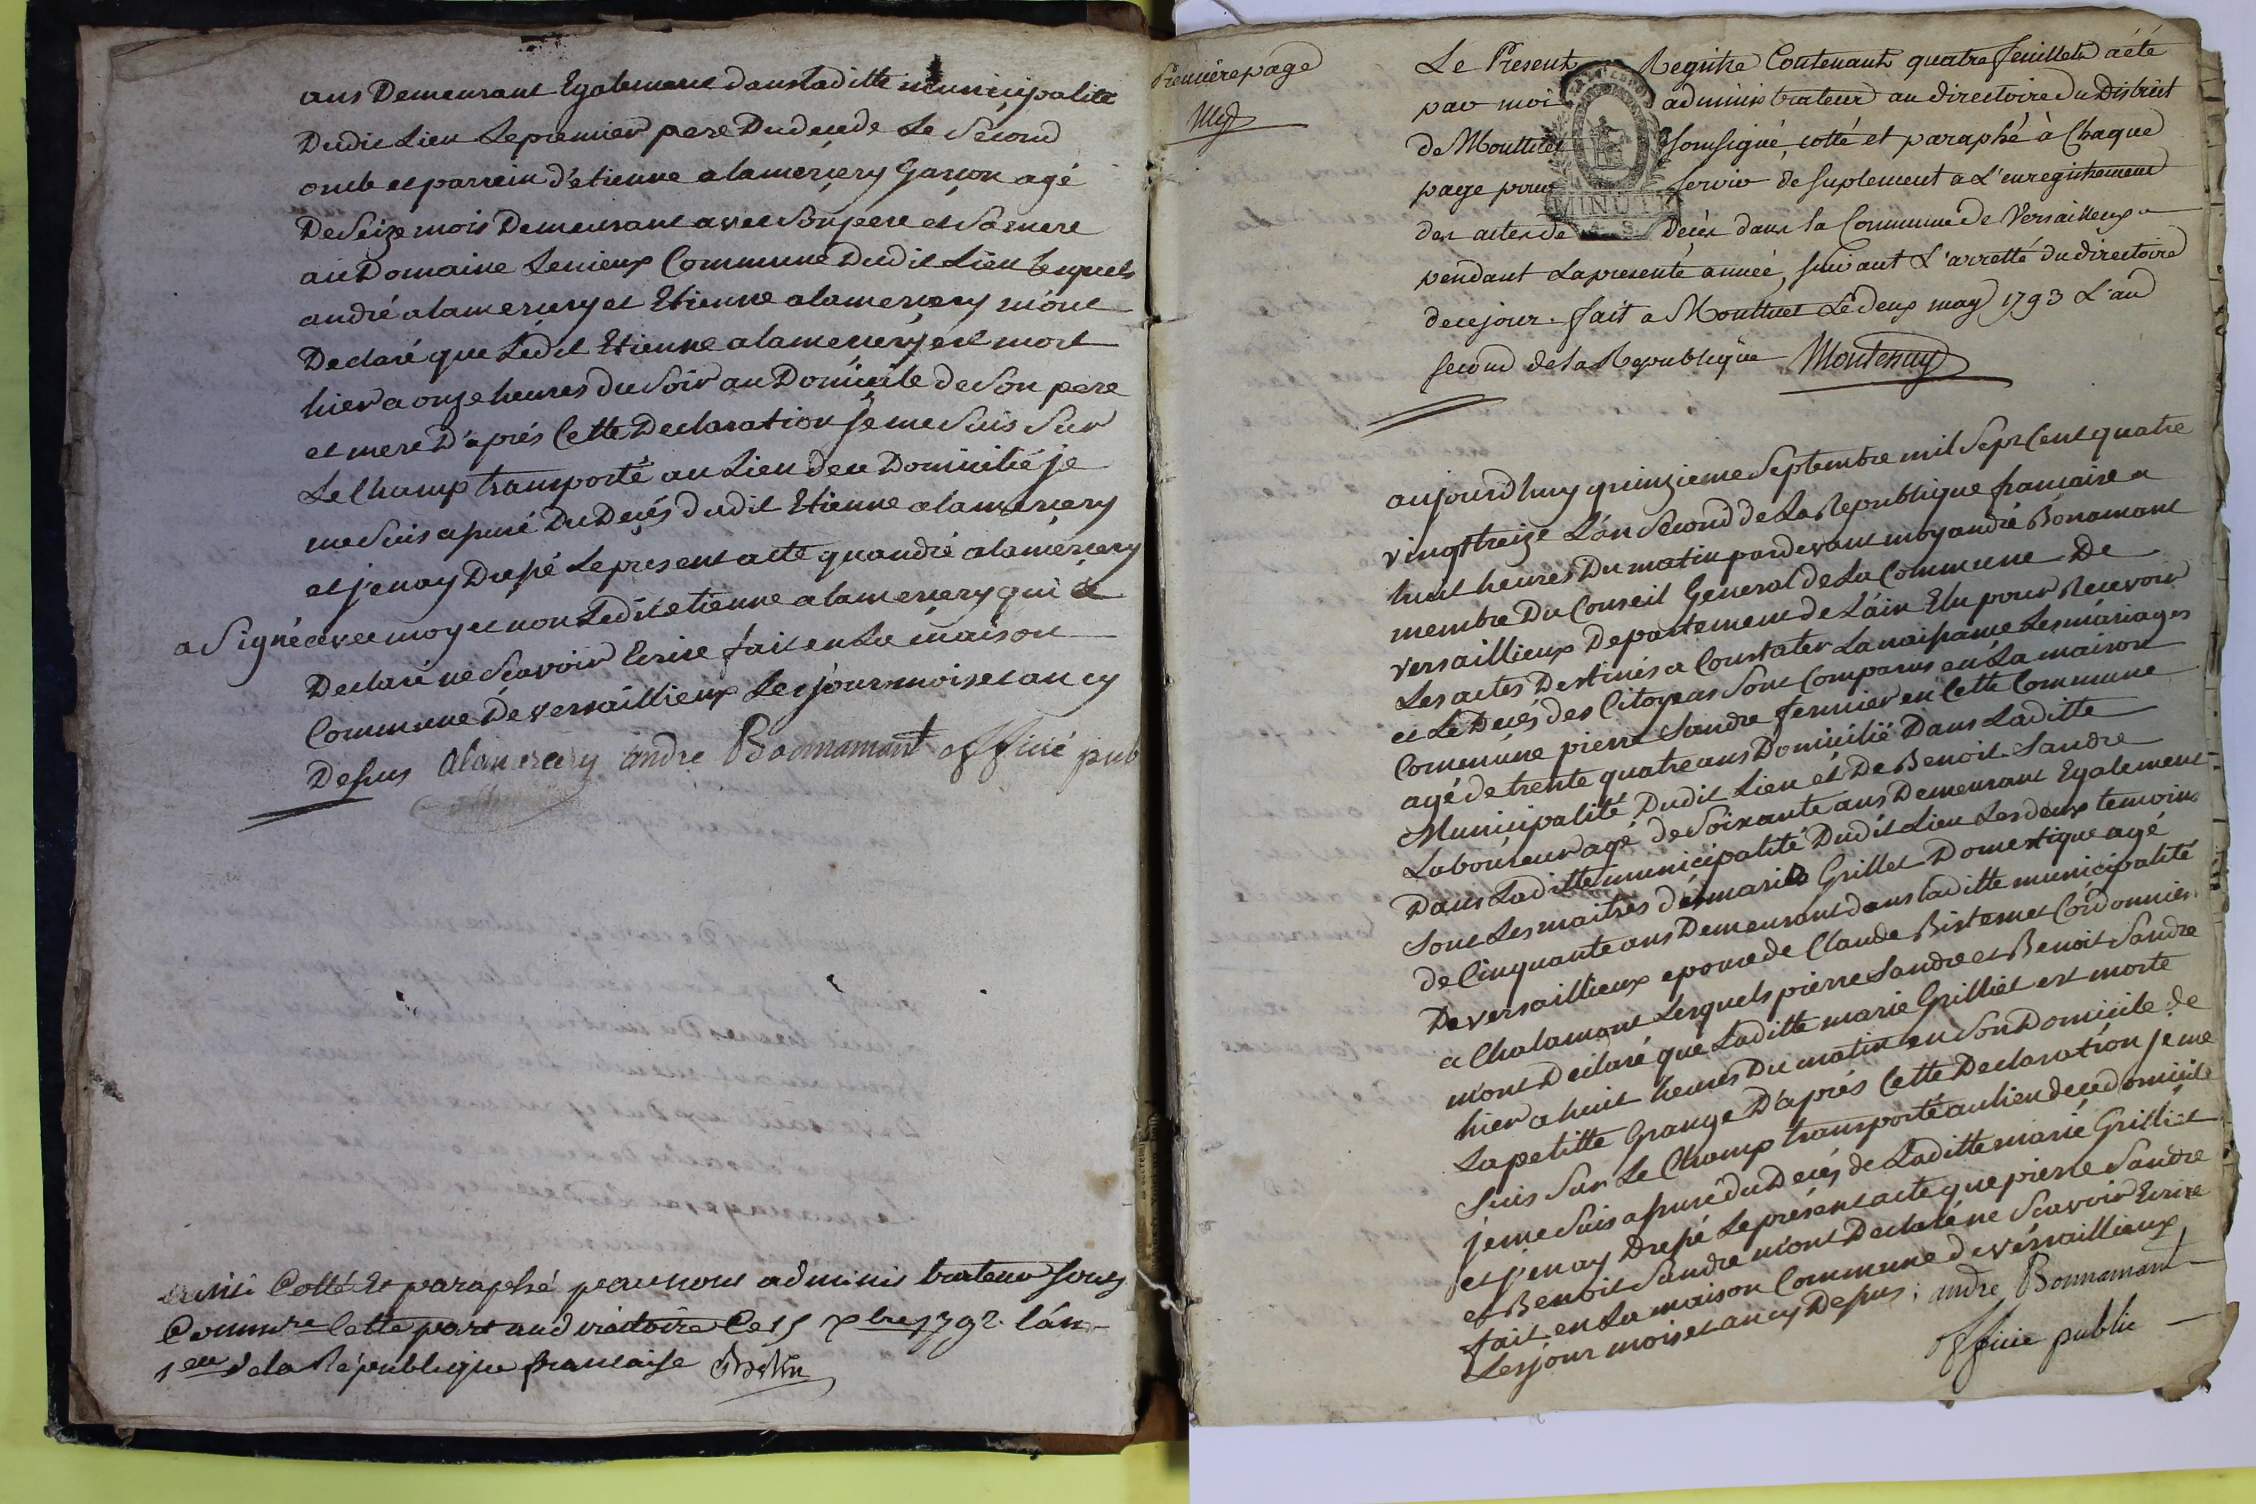 ans Demeurant Egalement dans laditte municipalité
Dudit Lieu Le premier pere Du decede Le Second
oncle et parrein d'etienne alamerçery Garçon agé
De Seize mois Demeurant avec Son pere et Sa mere
au Domaine Commune Dudit Lieu lesquels
andré alamercery et Etienne alamercery m'ont
Declaré que Ledit Etienne alamercery est mort
hier a onze heures du Soir au Domicile de Son pere
et mere D'après Cette Declaration Je me Suis Sur
Le Champ transporté au Lieu de ce Domicilié je
me Suis assuré Du Decés dudit Etienne alamercery
et j'en ay Dressé Le present acte qu'andré alamercery
a Signé avec moy et non Ledit etienne alamercery qui a
Declaré ne Scavoir Ecrire fait en La maison
Commune De versaillieux Les jours mois et an cy
Dessus alamercery andre Bonnamant officié pub
Cotté Et paraphé par nous administrateur Sous
Commre Cette part au directoire Ce 15 xbre 1792. l'an
1er de la République francaise
Premiere page
Le Present Registre Contenant quatre feuillets a été
par moi administrateur au directoire du District
de Montluel Soussigné, cotté et paraphé à Chaque
page pour servir de Suplement a L'enregistrement
des actes de Décés dans la Commune de Versailleux
pendant La presente année, suivant L'arretté du directoire
de ce jour. fait a Montluel Le deux may 1793 L'an
second de la Republique Montenuy
MINUTE
aujourd'huy quinzieme Septembre mil Sept Cent quatre
vingt treize L'an Second de La Republique francaise a
huit heures Du matin pardevant moy andré Bonamant
membre Du Conseil General de La Commune De
versaillieux Departement de L'ain Elu pour Recevoir
Les actes Destinés a Constater La naissance Les mariages
et Le Decés des Citoyens Sont Comparus en La maison
Commune pierre Sandre fermier en Cette Commune
agé de trente quatre ans Domicilié Dans Laditte
Municipalité Dudit Lieu et De Benoit Sandre
Laboureur agé de Soixante ans Demeurant Egalement
Dans Laditte municipalité Dudit Lieu Les deux temoins
Sont Les maitres de marie Grillet Domestique agé
de Cinquante ans Demeurant dans laditte municipalité
De versaillieux epouse de Claude Cordonnier
a Chalamont Lesquels pierre Sandre et Benoit Sandre
m'ont Declaré que Laditte marie Grilliet est morte
hier a huit heures Du matin en Son Domicile de
La petitte Grange D'après Cette Declaration Je me
Suis Sur Le Champ transporté au lieu de ce domicile
je me Suis assuré du Decés de Laditte marie Grilliet
et j'en ay Dressé Le présent acte que pierre Sandre
et Benoit Sandre m'ont Declaré ne Scavoir Ecrire
fait en La maison Commune de versaillieux
Les jour mois et an cy Dessus; andre Bonnamant
officie public